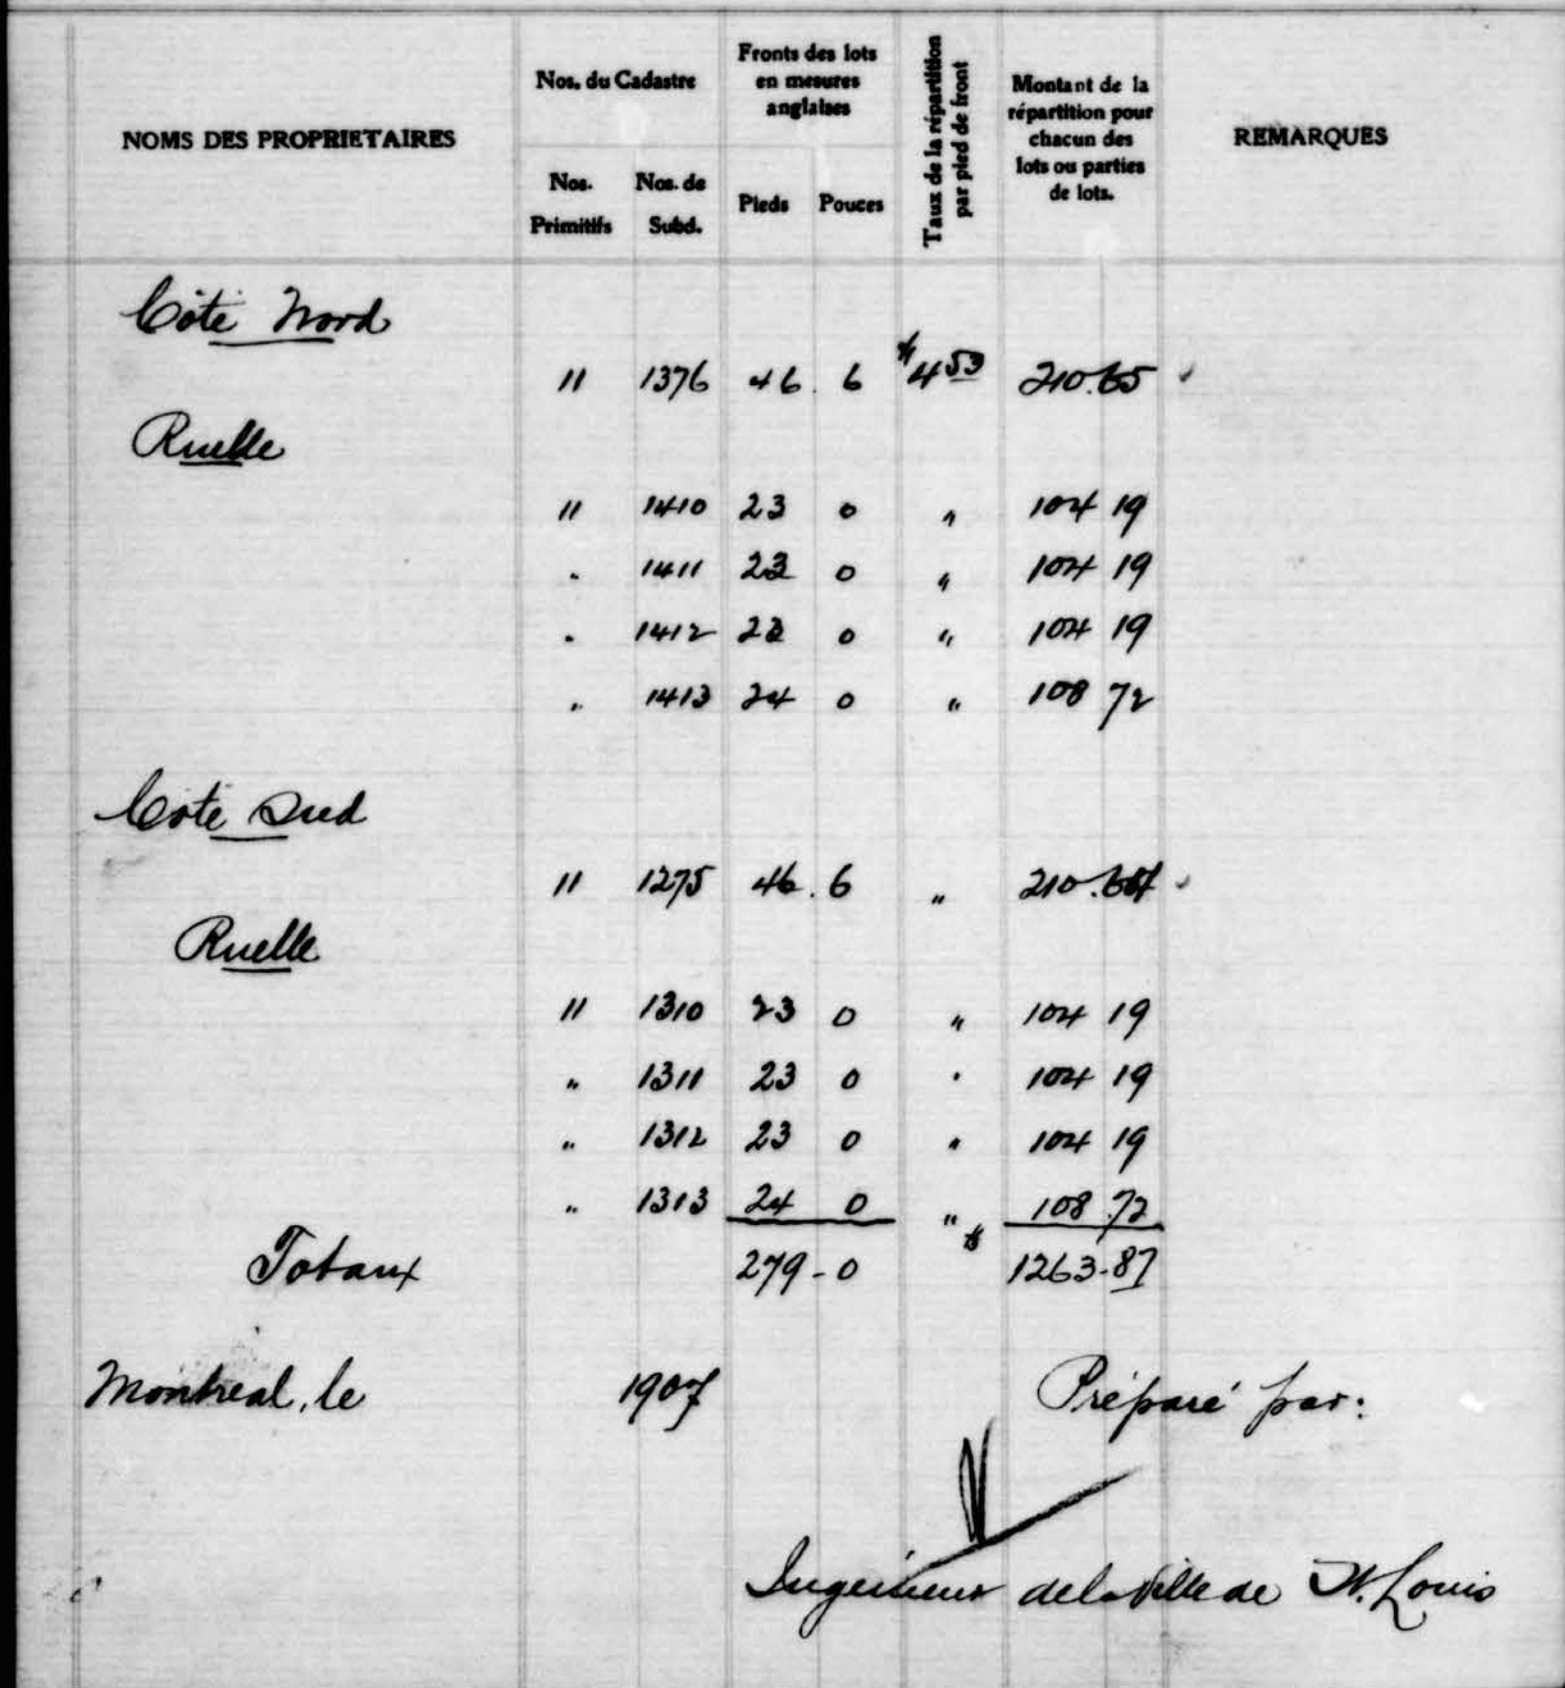 NOMS DES PROPRIETAIRES
Nos. du Cadastre
Nos. Primitifs
Nos. de Subd.
Fronts des lots en mesures anglaises
Pieds
Pouces
Taux de la répartition par pied de front
Montant de la répartition pour chacun des lots ou parties de lots.
REMARQUES
Côté Nord
" 1376 46 . 6 $4 53 210.65
Ruelle
" 1410 23 0 " 104 19
" 1411 23 0 " 104 19
" 1412 23 0 " 104 19
" 1413 24 0 " 108 72
Coté Sud
" 1275 46 . 6 " 210.
Ruelle
" 1310 23 0 " 104 19
" 1311 23 0 " 104 19
" 1312 23 0 " 104 19
" 1313 24 0 " 108.72
Totaux 279 - 0 $ 1263-87
Montreal, le 1907 Préparé par:
Ingenieur de la Ville de St. Louis